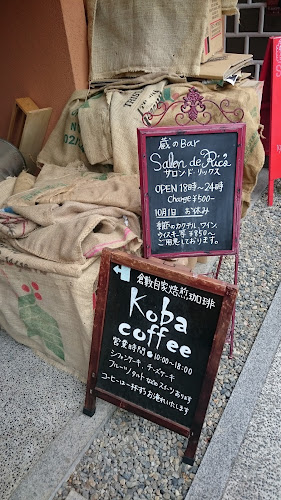 蔵のBar
Salon de Rics
サロンド・リックス
OPEN 18時〜24時
Charge ¥500-
10月1日 お休み
季節のカクテル、ワイン、
ウイスキー等 ¥850〜
ご用意しております。
倉敷自家焙煎珈琲
Koba
coffee
営業時間 10:00〜18:00
シフォンケーキ、チーズケーキ
フルーツタルト などのスイーツあります
コーヒーは一杯ずつお淹れいたします